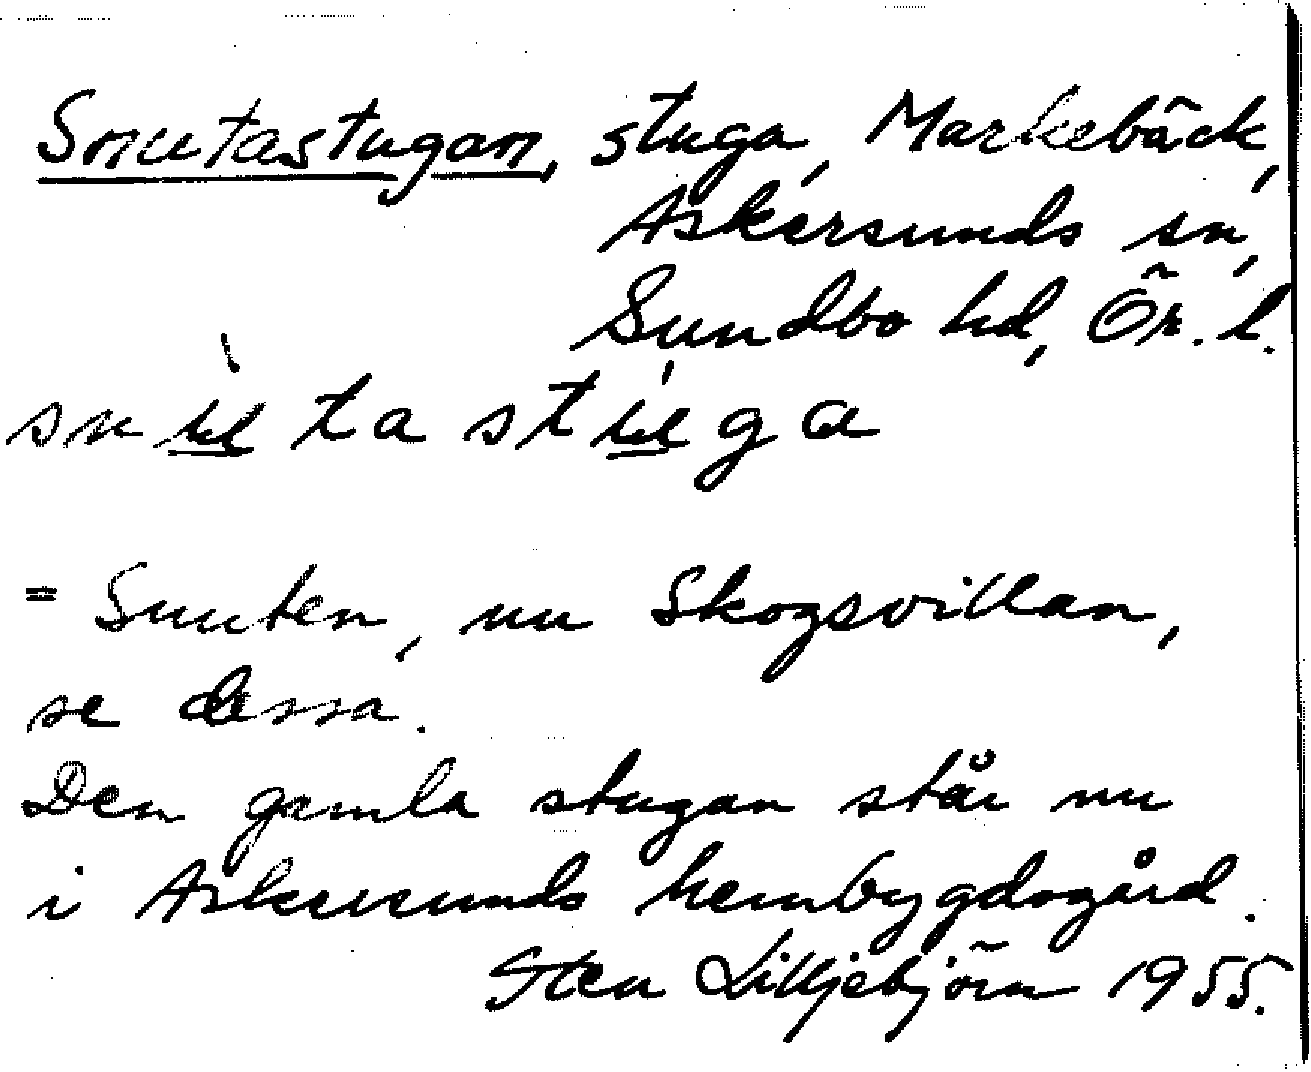 Snutastugan, stuga, Markebäck,
Askersunds sn,
Sundbo hd, Ör. l.
snùtastúga
= Snuten, nu Skogsvillan,
se dessa.
Den gamla stugan står nu
i Askersunds hembygdsgård.
Sten Lilljebjörn 1955.